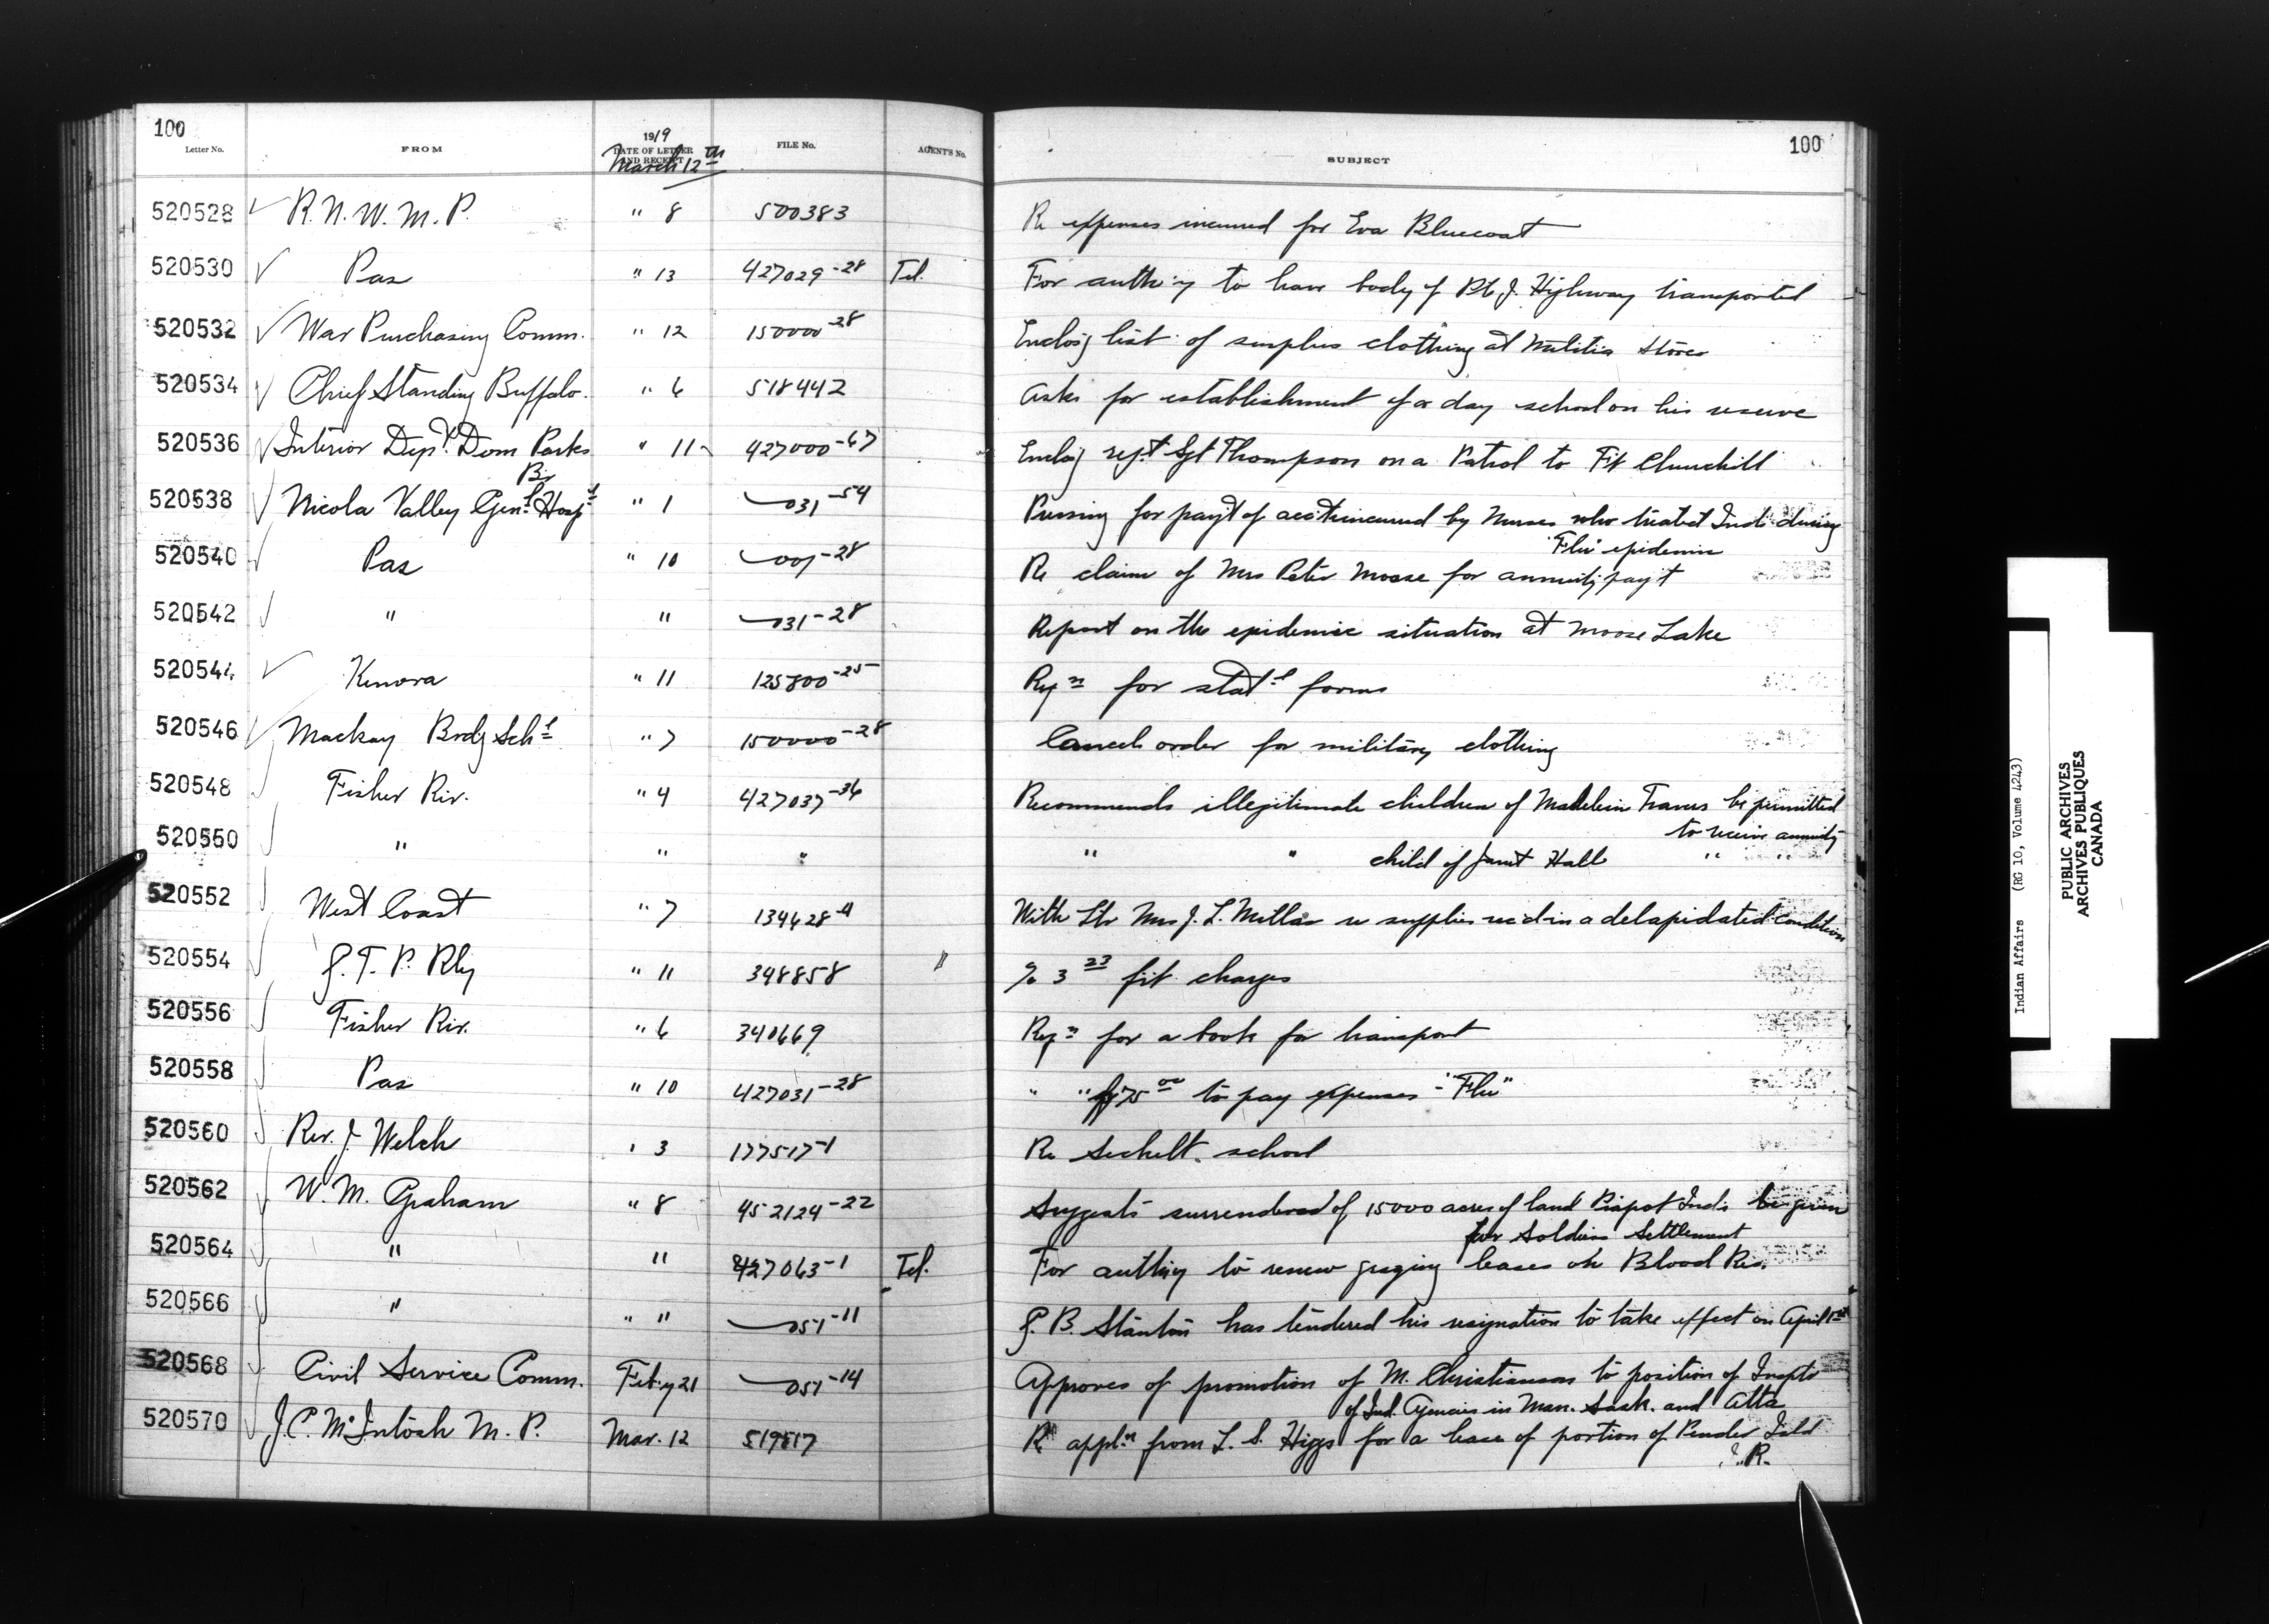 100
Letter No. FROM 1919 DATE OF LETTER AND RECEIPT FILE No. AGENT'S No. SUBJECT 100
March 12th
520528 R. N. W. M. P. " 8 500383 Re expenses incurred for Eva Bluecoat
520530 Pas " 13 427029-28 Tel. For auth'y to have body of Pte J. Highway transported
520532 War Purchasing Comm. " 12 150000-28 Enclos'g list of surplus clothing at Militia Stores
520534 Chief Standing Buffalo. " 6 518442 Asks for establishment of a day school on his reserve
520536 Interior Dept. Dom Parks Br " 11 427000-67 Enclos'g rep't Sgt Thompson on a Patrol to Ft Churchill
520538 Nicola Valley Genl. Hospl " 1 031-54 Pressing for pay't of acct incurred by Nurses who treated Inds during
"Flu" epidemic
520540 Pas " 10 001-28 Re claim of Mrs Peter Moose for annuity pay't
520542 " " 031-28 Report on the epidemic situation at Moose Lake
520544 Kenora " 11 125800-25 Reqn for statl forms
520546 Mackay Brdg Schl " 7 150000-28 Cancels order for military clothing
520548 Fisher Riv. " 4 427037-36 Recommends illegitimate children of Madelein Travers be permitted
to receive annuity
520550 " " " " " child of Janet Hall " "
520552 West Coast " 7 134428-4 With ltr Mrs J. L. Millar re supplies rec'd in a delapidated condition
520554 G. T. P. Rly " 11 348858 " % 3 23 frt charges
520556 Fisher Riv. " 6 340669 Reqn for a book for transport
520558 Pas " 10 427031-28 " " for 75 00 to pay expenses - "Flu"
520560 Rev. J. Welch " 3 177517-1 Re Sechelt school
520562 W. M. Graham " 8 452124-22 Suggests surrendered of 15000 acres of land Piapot Inds be given
for Soldiers Settlement
520564 " " 427063-1 Tel. For auth'y to renew grazing leases on Blood Res.
520566 " " " 051-11 G. B. Stanton has tendered his resignation to take effect on April 1st
520568 Civil Service Comm. Feb'y 21 051-14 Approves of promotion of M. Christianson to position of Inspto
of Ind. Agencies in Man. Sask. and Alta
520570 J. C. McIntosh M. P. Mar. 12 519817 Re appln from L. S. Higgs for a lease of portion of Pender Isld
I. R.
Indian Affairs (RG 10, Volume 4243)
PUBLIC ARCHIVES
ARCHIVES PUBLIQUES
CANADA